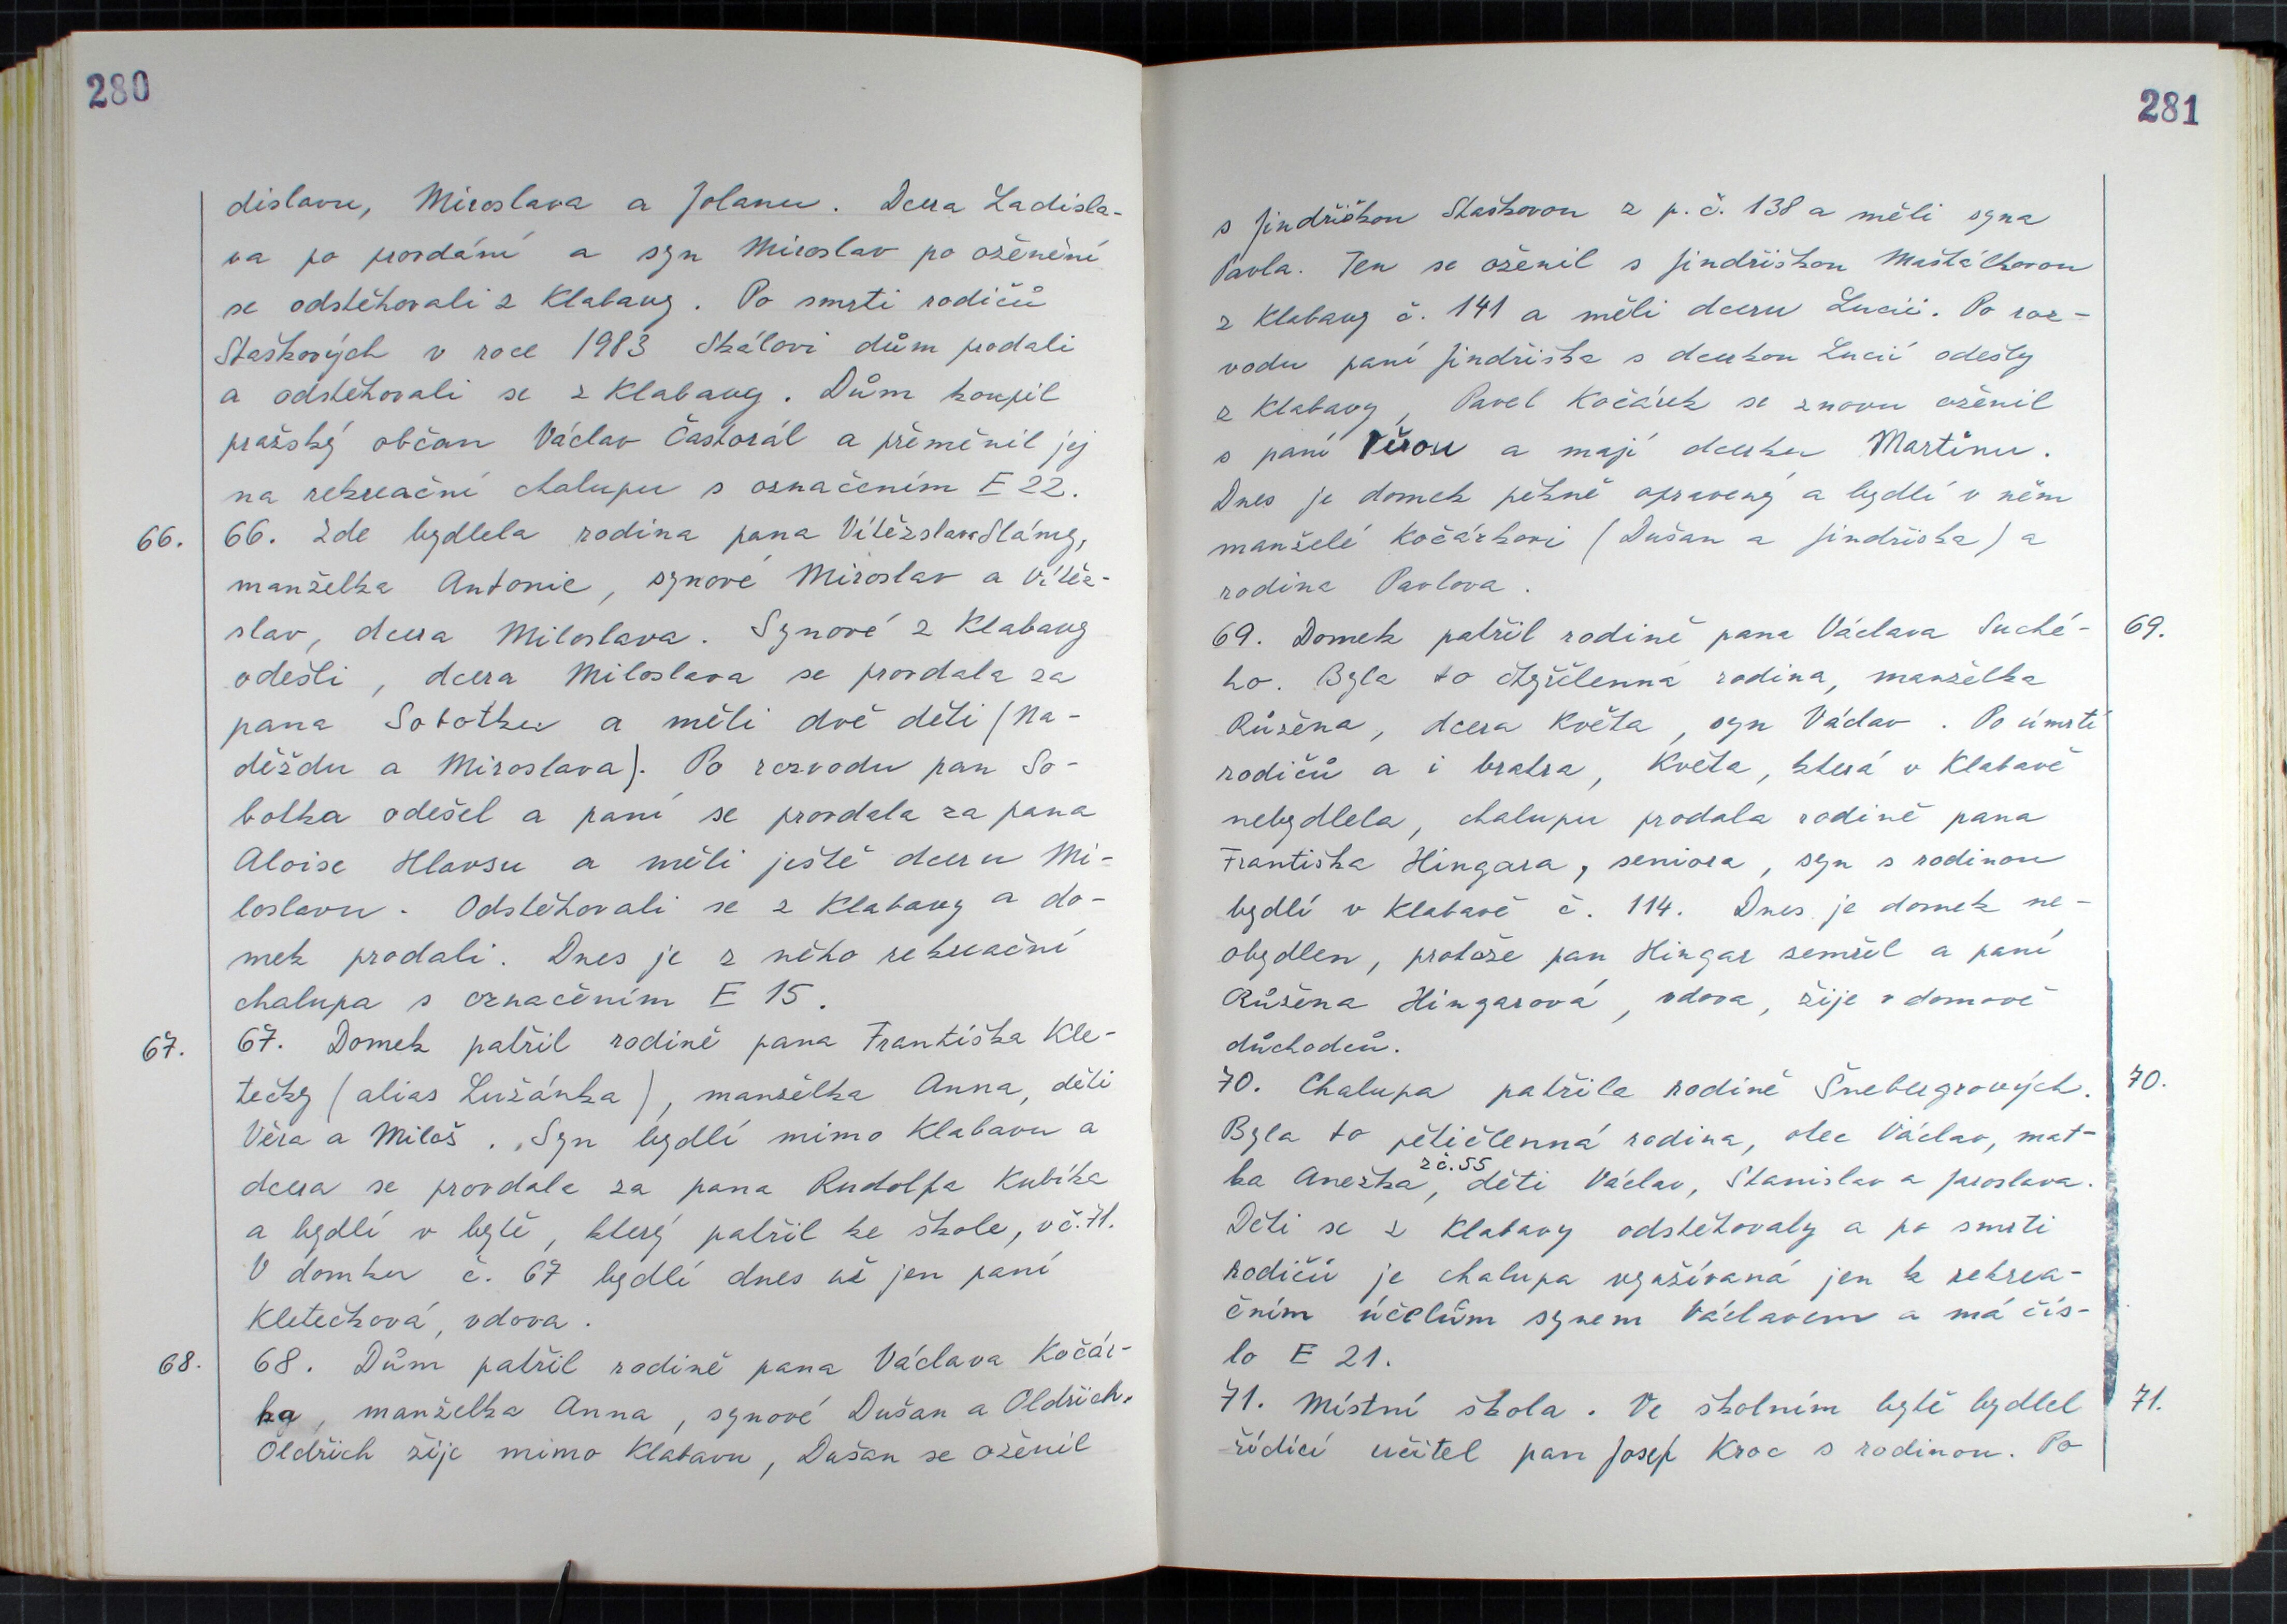 280
dislavu, Miroslava a Jolanu. Dcera Ladisla-
va po provdání a syn Miroslav po oženění
se odstěhovali z Klabavy. Po smrti rodičů
Staškových v roce 1983 Skálovi dům prodali
a odstěhovali se z Klabavy. Dům koupil
pražský občan Václav Častorál a přeměnil jej
na rekreační chalupu s označením E 22.
66. 66. Zde bydlela rodina pana Vítězslava Slámy,
manželka Antonie, synové Miroslav a Vítěz-
slav, dcera Miloslava. Synové z Klabavy
odešli, dcera Miloslava se provdala za
pana Sobotku a měli dvě děti (Na-
děždu a Miroslava). Po rozvodu pan So-
botka odešel a paní se provdala za pana
Aloise Hlavsu a měli ještě dceru Mi-
loslavu. Odstěhovali se z Klabavy a do-
mek prodali. Dnes je z něho rekreační
chalupa s označením E 15.
67. 67. Domek patřil rodině pana Františka Kle-
tečky (alias Lužánka), manželka Anna, děti
Věra a Miloš. Syn bydlí mimo Klabavu a
dcera se provdala za pana Rudolfa Kubíka
a bydlí v bytě, který patřil ke škole, v č. 71.
V domku č. 67 bydlí dnes už jen paní
Kletečková, vdova.
68. 68. Dům patřil rodině pana Václava Kočár-
ka, manželka Anna, synové Dušan a Oldřich.
Oldřich žije mimo Klabavu, Dušan se oženil
281
s Jindřiškou Staškovou z p. č. 138 a měli syna
Pavla. Ten se oženil s Jindřiškou Maštálkovou
z Klabavy č. 141 a měli dceru Lucii. Po roz-
vodu paní Jindřiška s dcerkou Lucií odešly
z Klabavy, Pavel Kočárek se znovu oženil
s paní Věrou a mají dcerku Martinu.
Dnes je domek pěkně opravený a bydlí v něm
manželé Kočárkovi (Dušan a Jindřiška) a
rodina Pavlova.
69. Domek patřil rodině pana Václava Suché- 69.
ho. Byla to čtyřčlenná rodina, manželka
Růžena, dcera Květa, syn Václav. Po úmrtí
rodičů a i bratra, Květa, která v Klabavě
nebydlela, chalupu prodala rodině pana
Františka Hingara, seniora, syn s rodinou
bydlí v Klabavě č. 114. Dnes je domek ne-
obydlen, protože pan Hingar zemřel a paní
Růžena Hingarová, vdova, žije v domově
důchodců.
70. Chalupa patřila rodině Šnebergrových. 70.
Byla to pětičlenná rodina, otec Václav, mat-
z č. 55
ka Anežka, děti Václav, Stanislav a Jaroslava.
Děti se z Klabavy odstěhovaly a po smrti
rodičů je chalupa využívaná jen k rekrea-
čním účelům synem Václavem a má čís-
lo E 21.
71. Místní škola. Ve školním bytě bydlel 71.
řídící učitel pan Josef Kroc s rodinou. Po